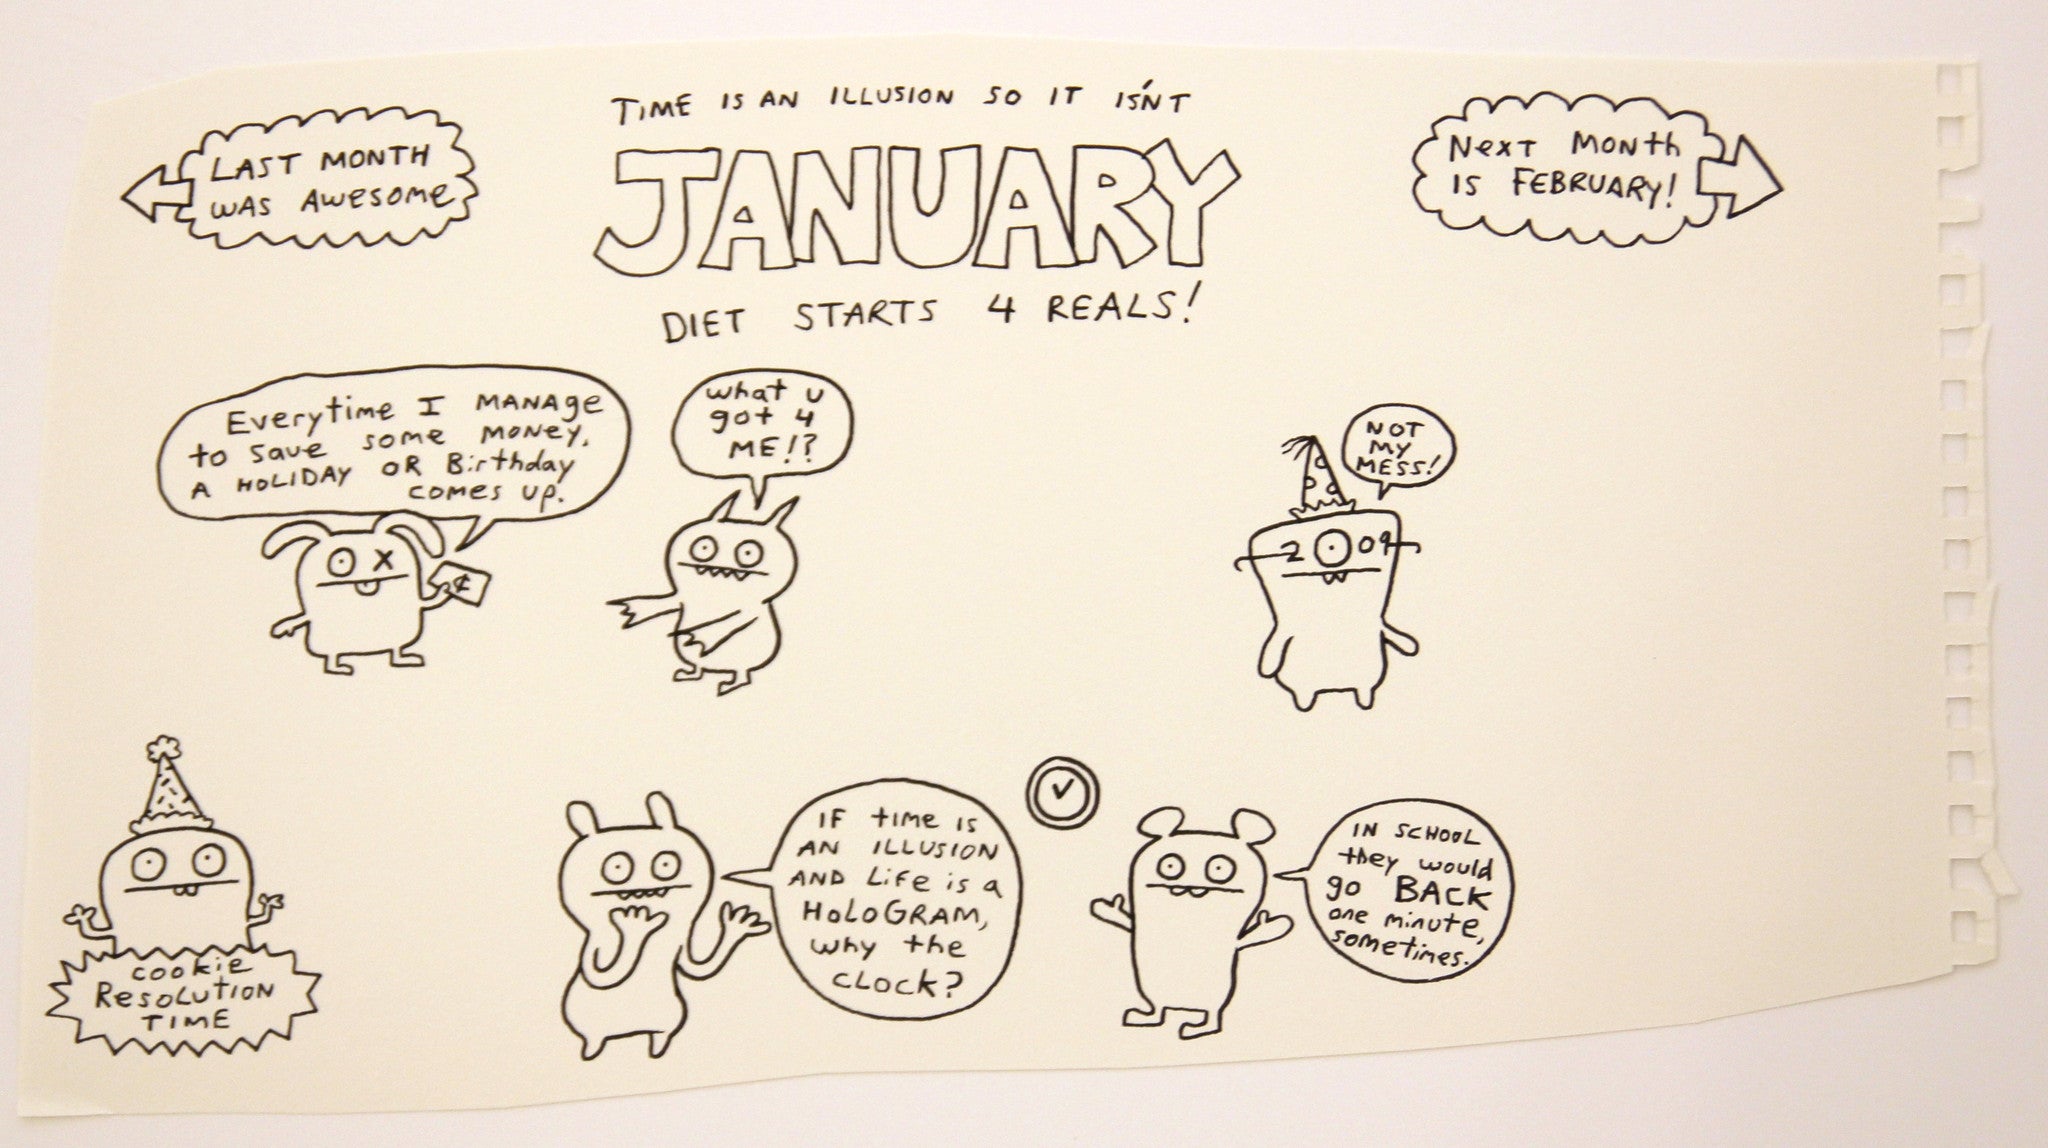 LAST MONTH
WAS AWESOME
TIME IS AN ILLUSION SO IT ISN'T
JANUARY
DIET STARTS 4 REALS!
NexT MONth
IS FEBRUARY!
Everytime I MANAge
to save some money,
A HOLIDAY OR Birthday
comes up!
what u
got 4
ME!?
¢
NOT
MY
MESS!
2009
cookie
ResoLUTION
TIME
IF time is
AN ILLUSION
AND Life is a
HoLoGRAM,
why the
CLOCK?
IN SCHOOL
they would
go BACK
one minute,
sometimes.